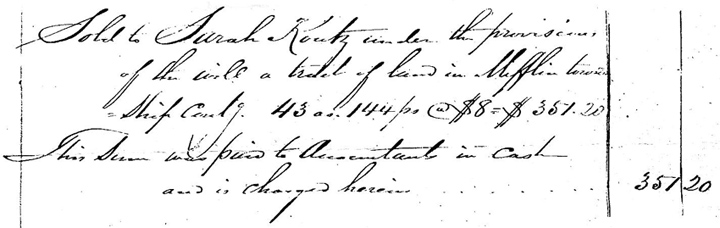 Sold to Sarah Koutz under the provisions
of the will a tract of land in Mifflin town
=ship Contg. 43 as. 144 ps @ $8 = $351.20
This Sum was paid to Accountants in cash
and is charged herein . . . . . . . . 351 20